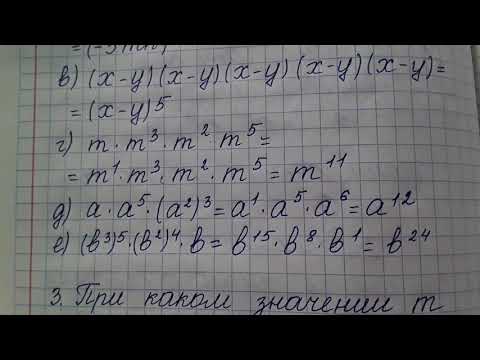 = (-5mn)
в) (x-y)(x-y)(x-y)(x-y)(x-y)=
= (x-y)⁵
г) m · m³ · m² · m⁵ =
= m¹ · m³ · m² · m⁵ = m¹¹
д) a · a⁵ · (a²)³ = a¹ · a⁵ · a⁶ = a¹²
е) (b³)⁵ · (b²)⁴ · b = b¹⁵ · b⁸ · b¹ = b²⁴
3. При каком значении m